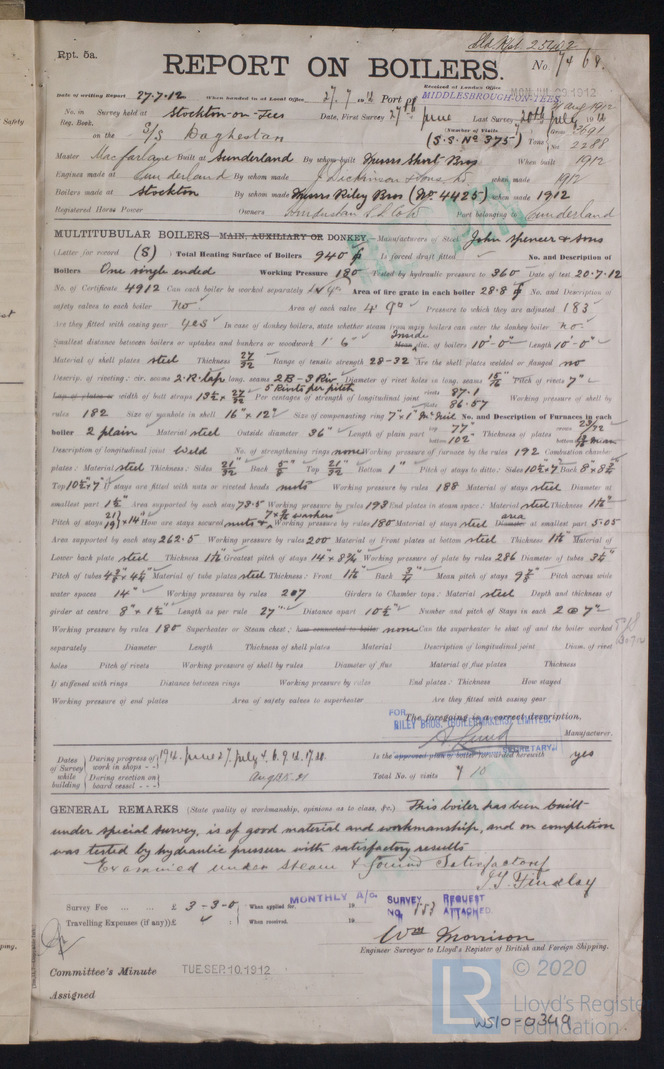 Sld. Rpt. 25402
Rpt. 5a.
REPORT ON BOILERS.
No. 7468.
Received at London Office MON. JUL 29 1912
Date of writing Report 27.7.12 When handed in at Local Office 27.7.1912 Port of MIDDLESBROUGH-ON-TEES
No. in Reg. Book. Survey held at Stockton-on-Tees Date, First Survey 27th June Last Survey 20th July 1912
on the S/S Daghestan (S.S. No 375) (Number of Visits Gross 3691 Tons Net 2288
Master Macfarlane Built at Sunderland By whom built Messrs Short Bros When built 1912
Engines made at Sunderland By whom made J. Dickinson & Sons Ld when made 1912
Boilers made at Stockton By whom made Messrs Riley Bros (No. 4425) when made 1912
Registered Horse Power Owners Hindustan S.S. Co Ld Port belonging to Sunderland
MULTITUBULAR BOILERS MAIN, AUXILIARY OR DONKEY.—Manufacturers of Steel John Spencer & Sons
(Letter for record (S) ) Total Heating Surface of Boilers 940 ☐ Is forced draft fitted No. and Description of
Boilers One single ended Working Pressure 180 Tested by hydraulic pressure to 360 Date of test 20.7.12
No. of Certificate 4912 Can each boiler be worked separately Area of fire grate in each boiler 28.8 ☐ No. and Description of
safety valves to each boiler Area of each valve Pressure to which they are adjusted 183
Are they fitted with easing gear yes In case of donkey boilers, state whether steam from main boilers can enter the donkey boiler no.
Smallest distance between boilers or uptakes and bunkers or woodwork 1' 6" Inside Mean dia. of boilers 10'-0" Length 10'-0"
Material of shell plates steel Thickness 27/32 Range of tensile strength 28-32 Are the shell plates welded or flanged no
Descrip. of riveting: cir. seams 2.R.lap long. seams 2B-3 Riv. Diameter of rivet holes in long. seams 15/16" Pitch of rivets 7"
5 Rivts per pitch
Lap of plates or width of butt straps 13½ × 27/32 Per centages of strength of longitudinal joint rivets 87.1 plate 86.57 Working pressure of shell by
rules 182 Size of manhole in shell 16" × 12" Size of compensating ring 7" × 1" McNeil No. and Description of Furnaces in each
boiler 2 plain Material steel Outside diameter 36" Length of plain part top 77" bottom 102" Thickness of plates crown 23/32 bottom
Description of longitudinal joint Weld No. of strengthening rings none Working pressure of furnace by the rules 192 Combustion chamber
plates: Material steel Thickness: Sides 21/32 Back 5/8 Top 21/32 Bottom 1" Pitch of stays to ditto: Sides 10½ × 7" Back 8 × 8¾
Top 10½ × 7" If stays are fitted with nuts or riveted heads nuts Working pressure by rules 188 Material of stays steel Diameter at
smallest part 1½" Area supported by each stay 73.5 Working pressure by rules 193 End plates in steam space: Material steel Thickness
Pitch of stays × 14" How are stays secured nuts & washers Working pressure by rules 180 Material of stays steel area Diameter at smallest part 5.05
Area supported by each stay 262.5 Working pressure by rules 200 Material of Front plates at bottom steel Thickness Material of
Lower back plate steel Thickness Greatest pitch of stays 14" × 8¾ Working pressure of plate by rules 286 Diameter of tubes 3¼"
Pitch of tubes Material of tube plates steel Thickness: Front Back 3/4 Mean pitch of stays Pitch across wide
water spaces 14" Working pressures by rules 207 Girders to Chamber tops: Material steel Depth and thickness of
girder at centre 8" × 1½" Length as per rule 27" Distance apart 10½" Number and pitch of Stays in each 2 @ 7"
Working pressure by rules 180 Superheater or Steam chest; how connected to boiler none Can the superheater be shut off and the boiler worked
separately Diameter Length Thickness of shell plates Material Description of longitudinal joint Diam. of rivet
holes Pitch of rivets Working pressure of shell by rules Diameter of flue Material of flue plates Thickness
If stiffened with rings Distance between rings Working pressure by rules End plates: Thickness How stayed
Working pressure of end plates Area of safety valves to superheater Are they fitted with easing gear
The foregoing is a correct description,
FOR RILEY BROS. (BOILERMAKERS) LIMITED,
Manufacturer.
SECRETARY.
Dates of Survey while building During progress of work in shops - - 1912. June 27. July 4. 6. 9. 12. 17. 20. Is the approved plan of boiler forwarded herewith yes
During erection on board vessel - - - Aug Total No. of visits 7 10
GENERAL REMARKS (State quality of workmanship, opinions as to class, &c.) This boiler has been built
under special survey, is of good material and workmanship, and on completion
was tested by hydraulic pressure with satisfactory results
Examined under steam & found satisfactory
J.T. Findlay
Survey Fee ... ... £ 3-3-0 When applied for, MONTHLY A/c 19 SURVEY NO. REQUEST ATTACHED.
Travelling Expenses (if any) £ When received, 19
Wm Morrison
Engineer Surveyor to Lloyd's Register of British and Foreign Shipping.
Committee's Minute TUE. SEP. 10. 1912
Assigned
© 2020
LR Lloyd's Register
Foundation
WS10-0349